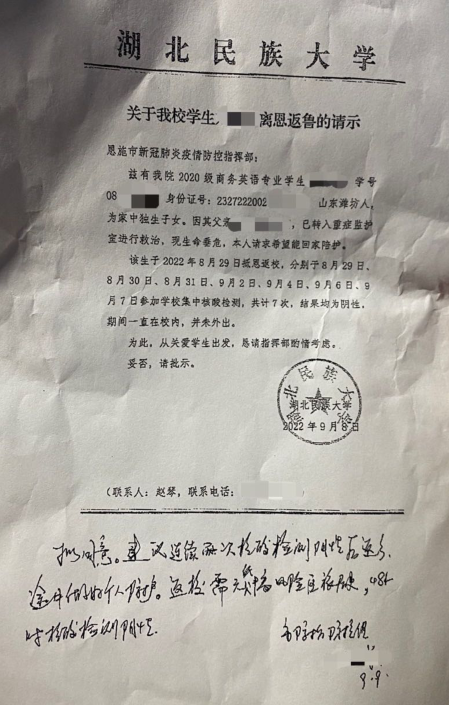 湖北民族大学
关于我校学生 离恩返鲁的请示
恩施市新冠肺炎疫情防控指挥部：
兹有我院2020级商务英语专业学生 学号
08 身份证号：2327222002 山东潍坊人，
为家中独生子女。因其父亲 ，已转入重症监护
室进行救治，现生命垂危，本人请求希望能回家陪护。
该生于2022年8月29日抵恩返校，分别于8月29日、
8月30日、8月31日、9月2日、9月4日、9月6日、9
月7日参加学校集中核酸检测，共计7次，结果均为阴性。
期间一直在校内，并未外出。
为此，从关爱学生出发，恳请指挥部酌情考虑。
妥否，请批示。
湖北民族大学
湖北民族大学
2022年9月8日
（联系人：赵琴，联系电话：
拟同意。建议连续两次核酸检测阴性后返乡，
途中做好个人防护。返校需无 风险区旅居史，48小
时核酸检测阴性。
9.9.